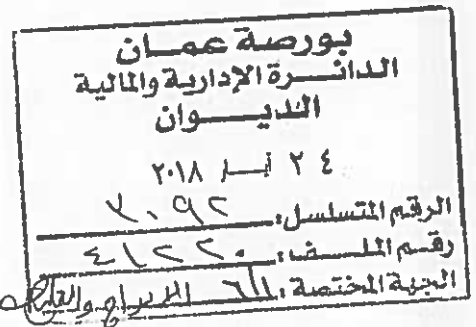 بورصة عمـان
الدائـــرة الإدارية والمالية
الديــــوان
٢٤ أيــار ٢٠١٨
الرقم المتسلسل: ٢٠٩٢
رقم الملـــف: ٤١٢٢٠
الجهة المختصة: الإدراج